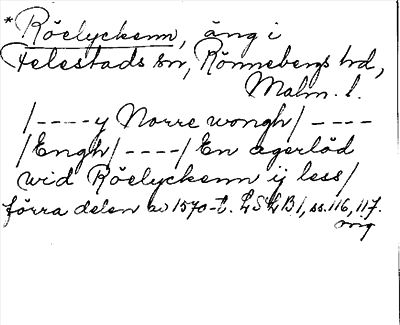 *Röelyckenn, äng i
Felestads sn, Rönnebergs hd,
Malm. l.
/----y Norre wongh/----
/Engh/----/En agerlöd
wid Röelyckenn ij less/
förra delen av 1570-t. LSLB 1, ss. 116, 117.
orig